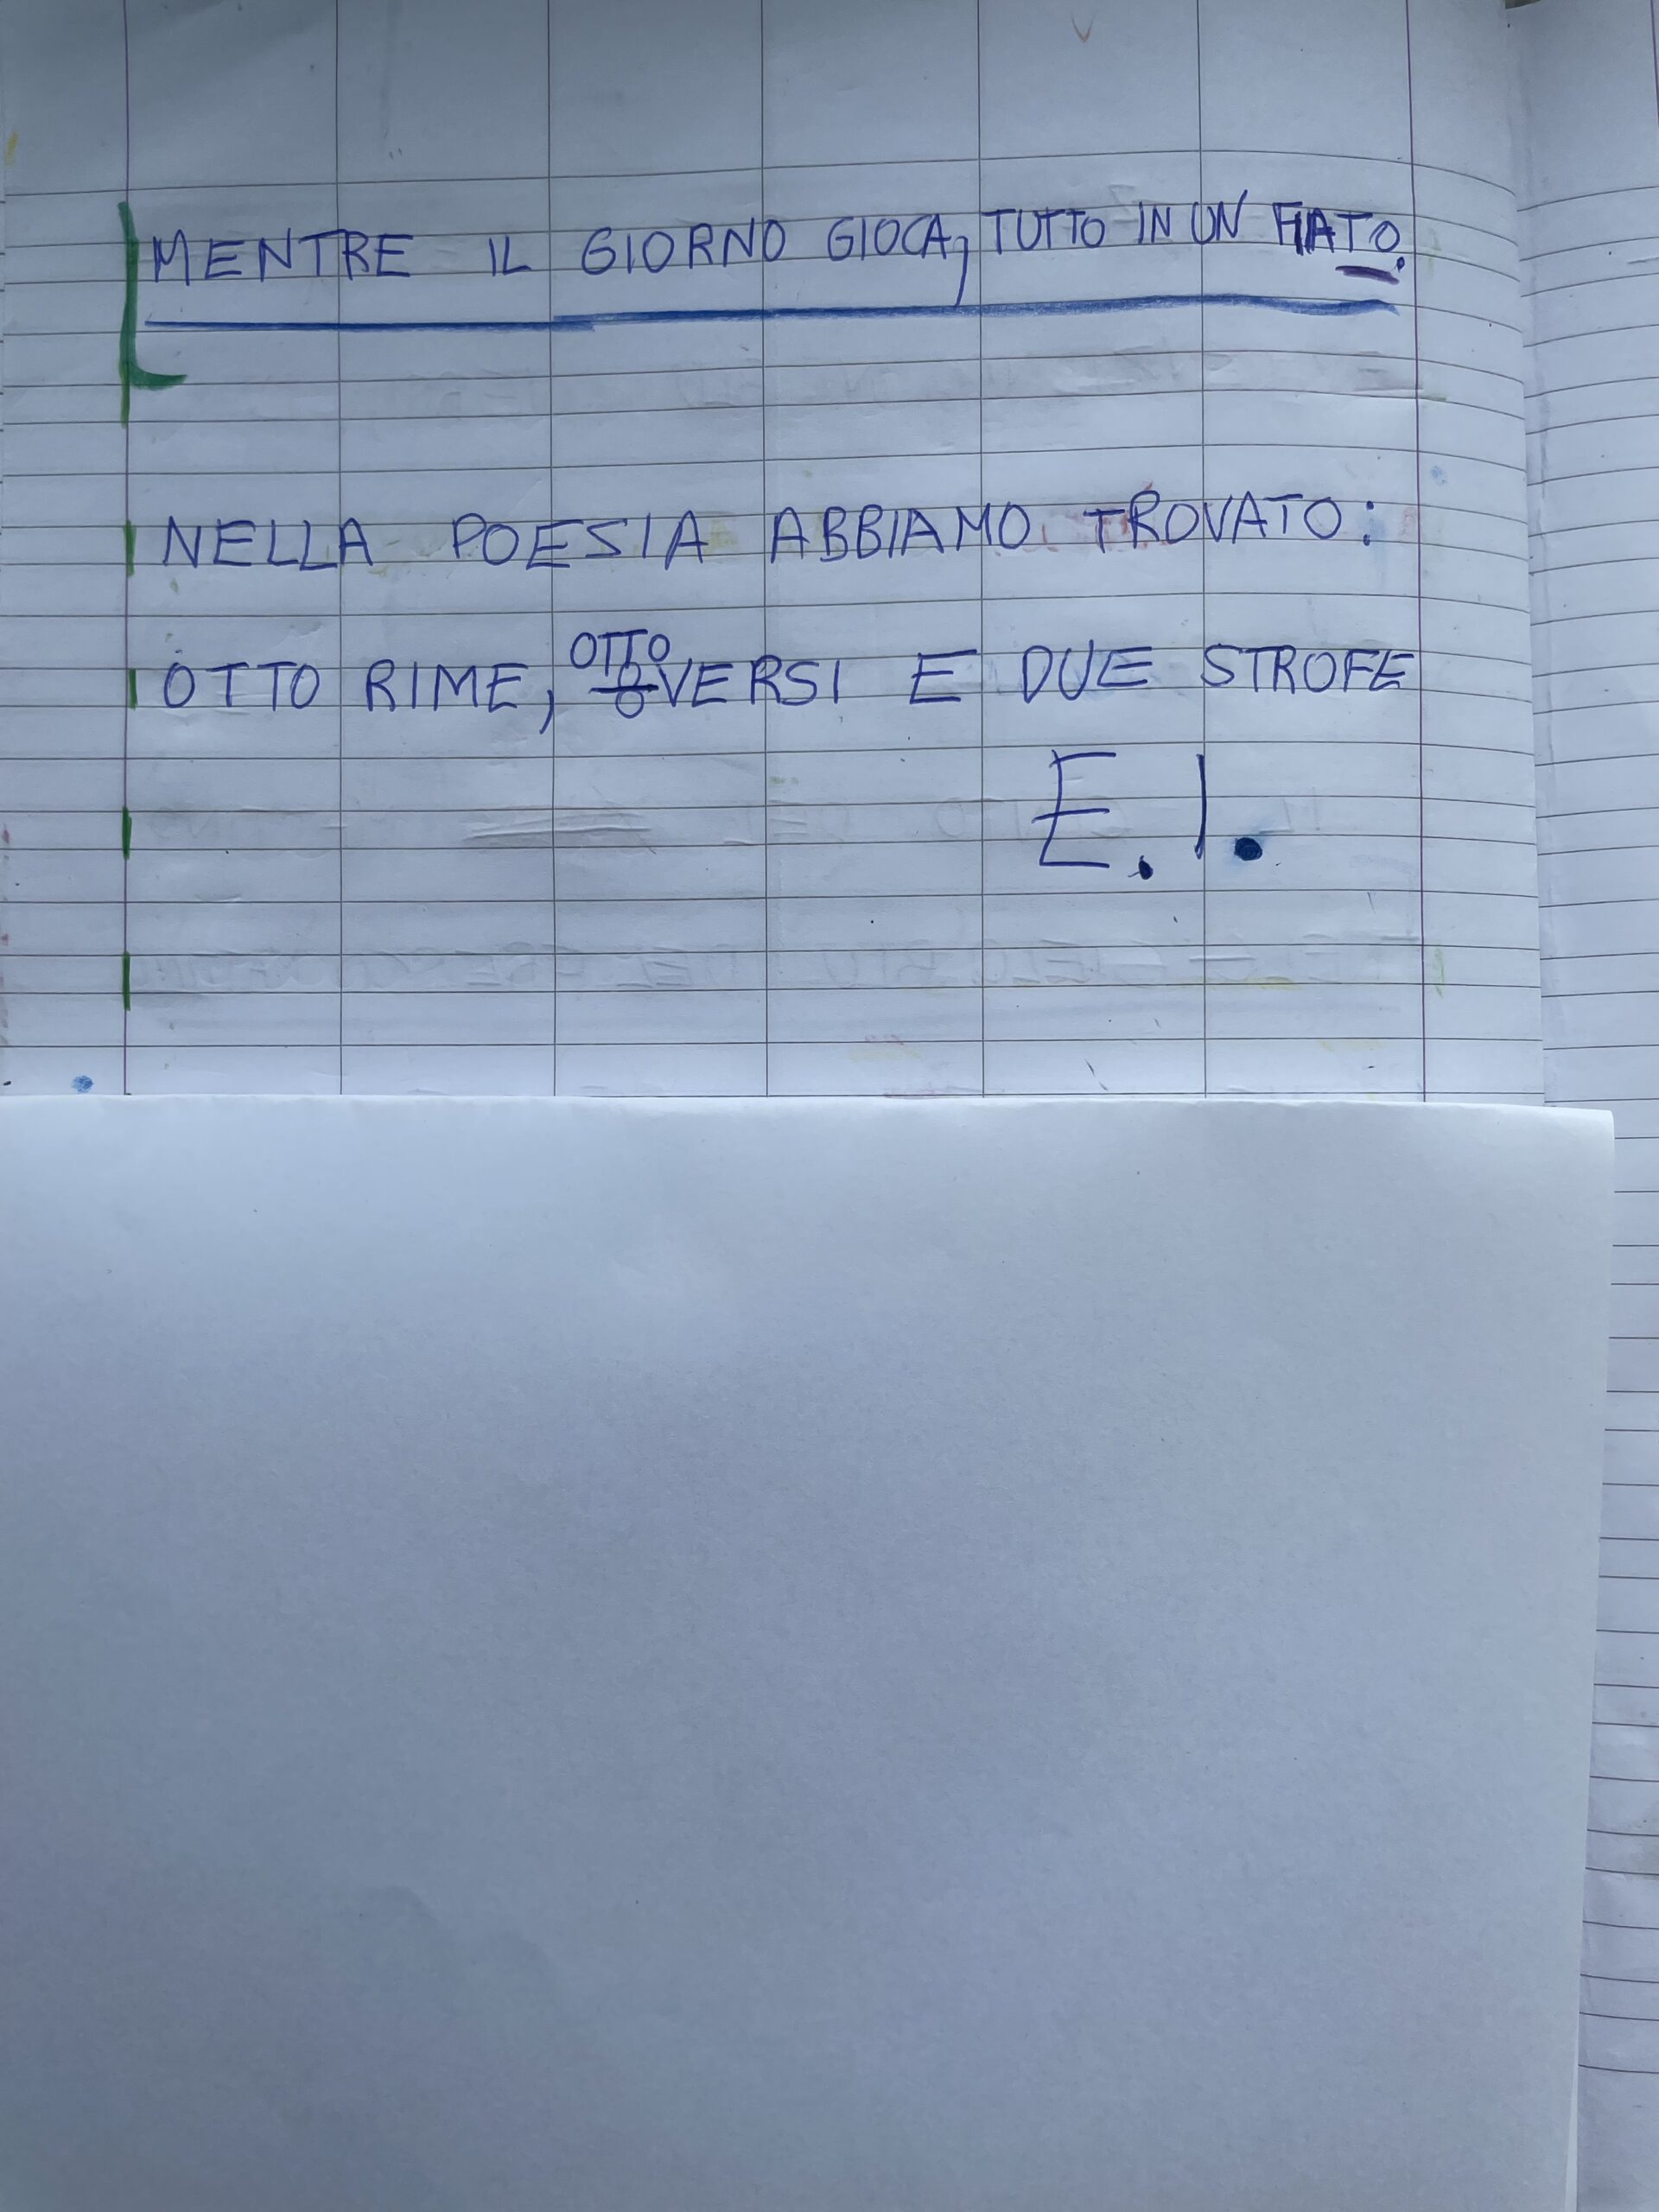 MENTRE IL GIORNO GIOCA, TUTTO IN UN FIATO.
NELLA POESIA ABBIAMO TROVATO:
OTTO RIME, OTTO VERSI E DUE STROFE
E. I.